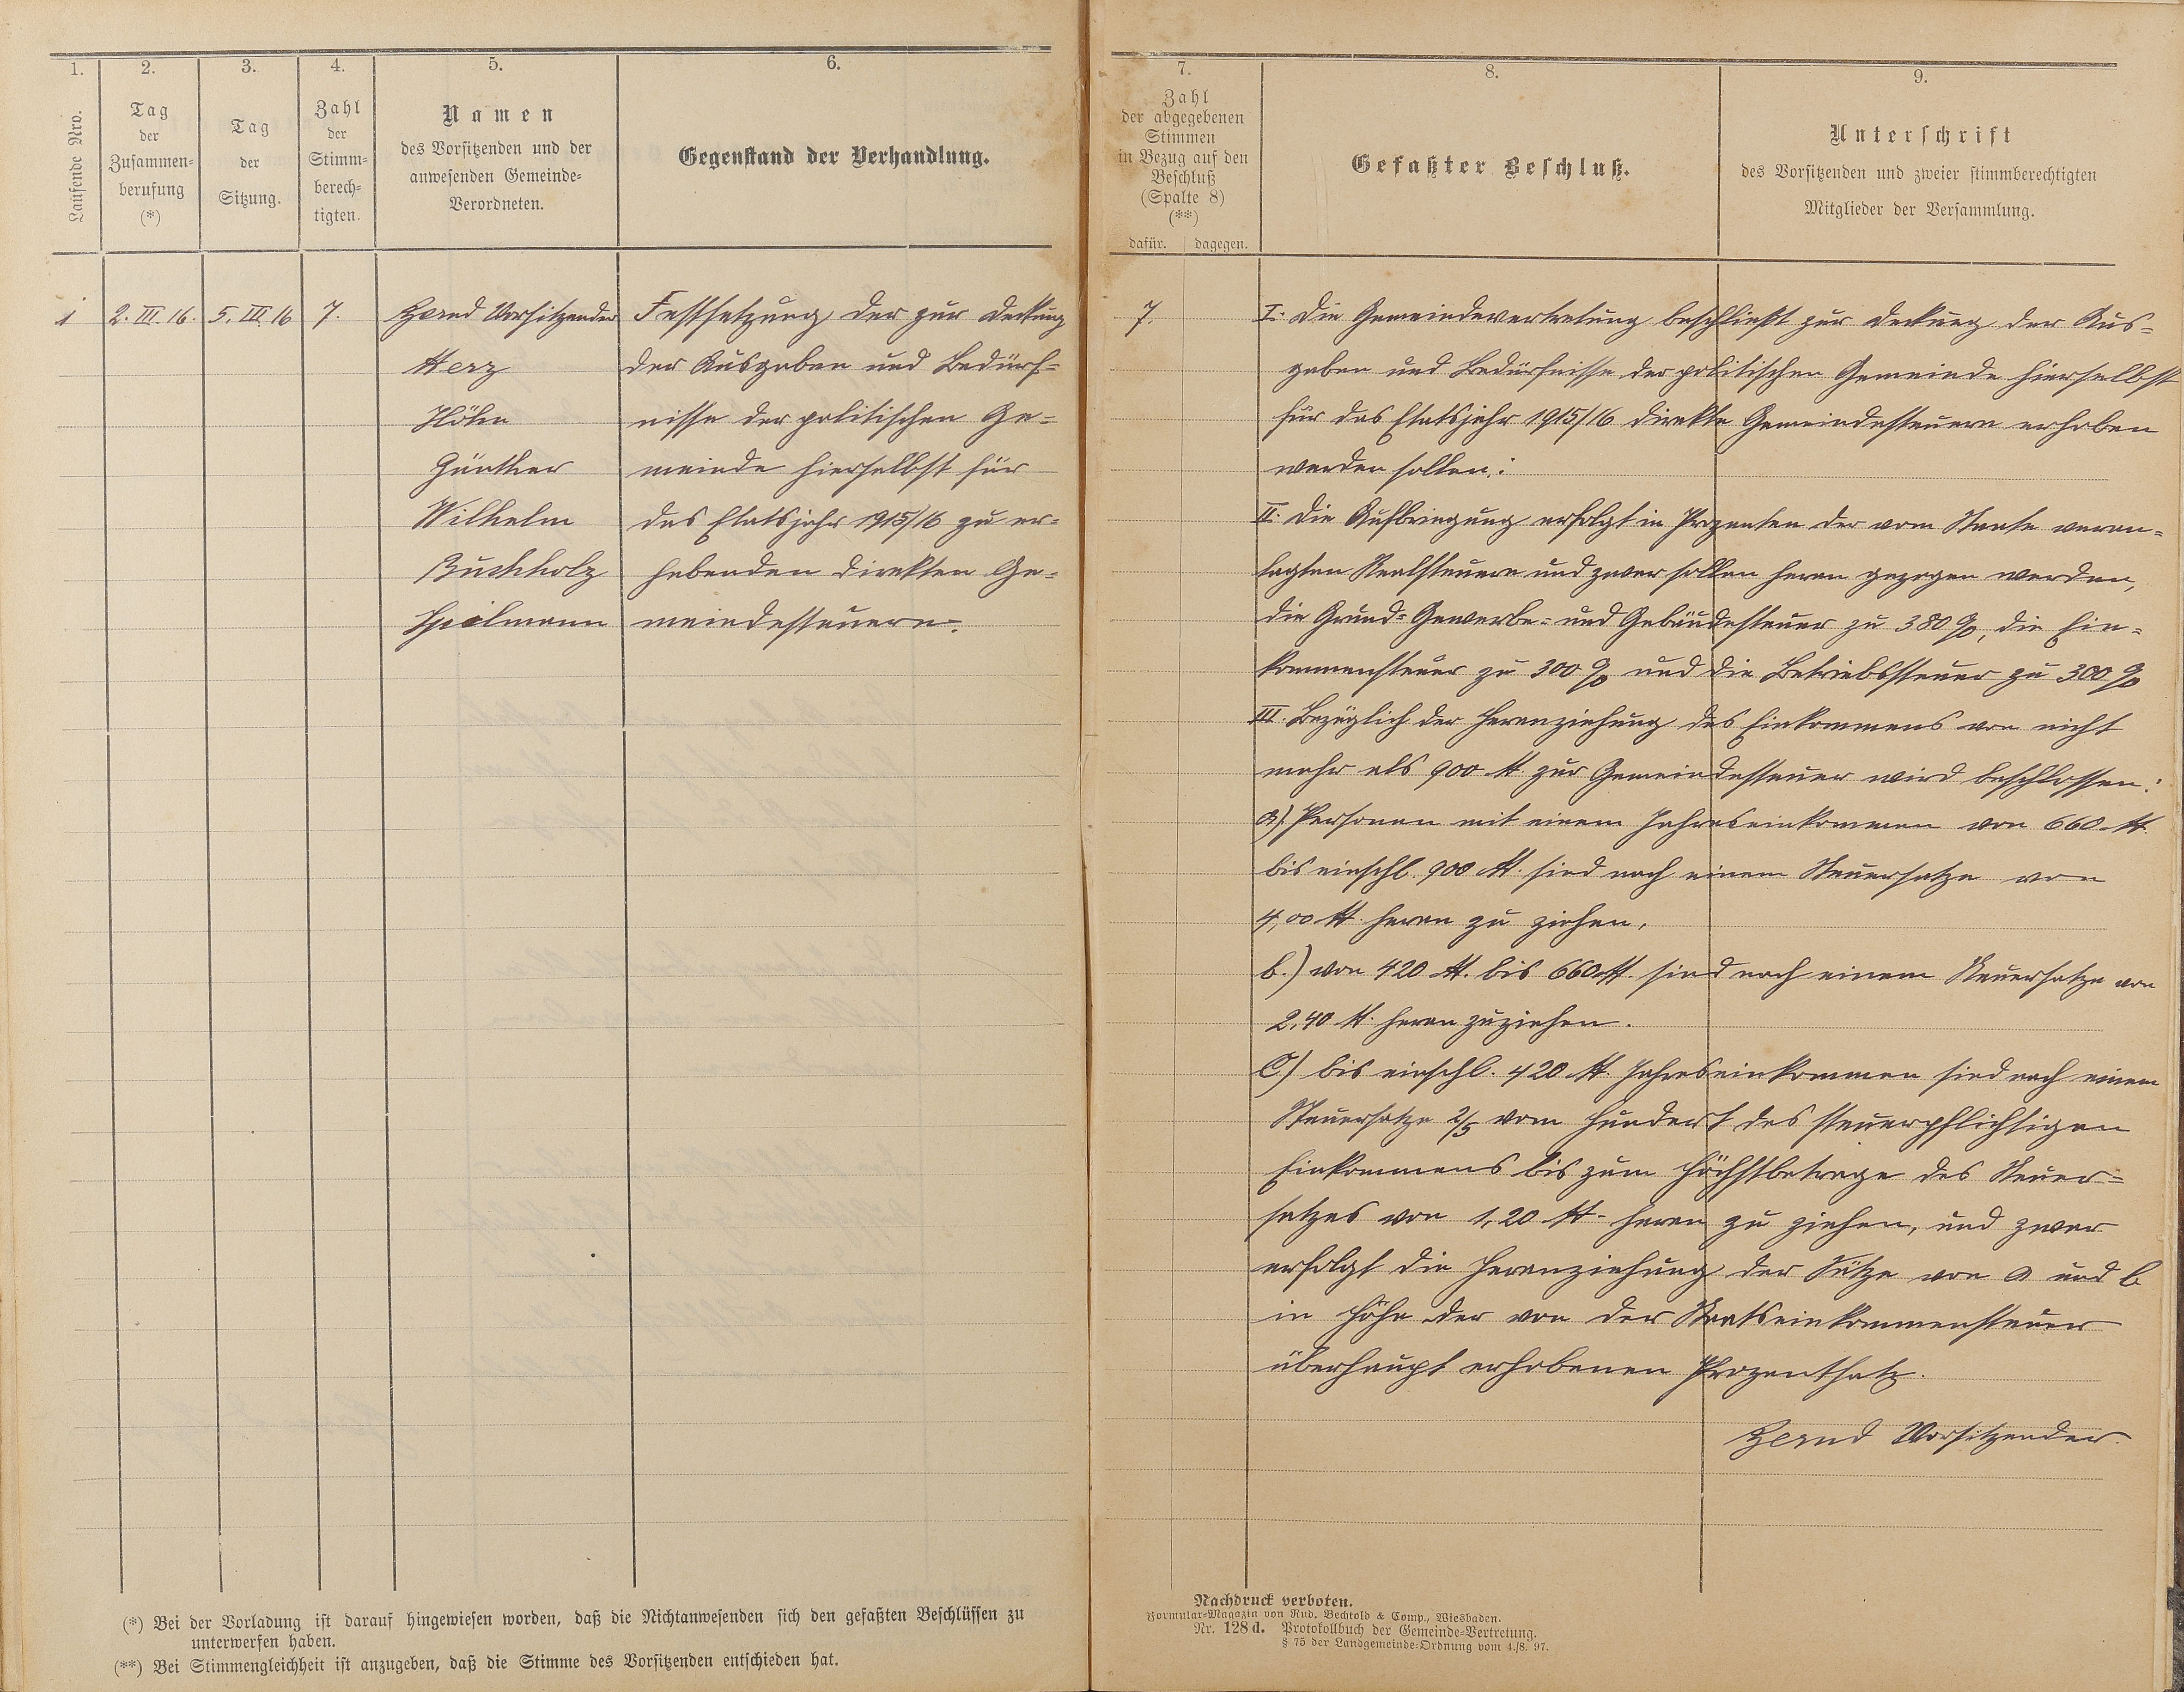 1.
2.
3.
4.
5.
6.
Laufende Nro.
Tag
der
Zusammen-
berufung
(*)
Tag
der
Sitzung.
Zahl
der
Stimm-
berech-
tigten.
Namen
des Vorsitzenden und der
anwesenden Gemeinde-
Verordneten.
Gegenstand der Verhandlung.
1 2. III. 16. 5. III. 16 7.
Vorsitzender
Herz
Höhn
Günther
Wilhelm
Buchholz
Spielmann
Festsetzung der zur Deckung
der Ausgaben und Bedürf=
nisse der politischen Ge=
meinde hierselbst für
das Etatsjahr 1915/16 zu er=
hebenden direkten Ge=
meindesteuern.
(*) Bei der Vorladung ist darauf hingewiesen worden, daß die Nichtanwesenden sich den gefaßten Beschlüssen zu
unterwerfen haben.
(**) Bei Stimmengleichheit ist anzugeben, daß die Stimme des Vorsitzenden entschieden hat.
7.
8.
9.
Zahl
der abgegebenen
Stimmen
in Bezug auf den
Beschluß
(Spalte 8)
(**)
dafür. dagegen.
Gefaßter Beschluß.
Unterschrift
des Vorsitzenden und zweier stimmberechtigten
Mitglieder der Versammlung.
7.
I. Die Gemeindevertretung beschließt zur Deckung der Aus=
gaben und Bedürfnisse der politischen Gemeinde hierselbst
für das Etatsjahr 1915/16 direkte Gemeindesteuern erhoben
werden sollen:
II. Die Aufbringung erfolgt in Prozenten der vom Staate veran=
lagten Realsteuern und zwar sollen heran gezogen werden,
die Grund= Gewerbe= und Gebäudesteuer zu 380 %, die Ein=
kommensteuer zu 300 % und die Betriebssteuer zu 300 %
III. Bezüglich der Heranziehung des Einkommens von nicht
mehr als 900 M. zur Gemeindesteuer wird beschlossen:
a). Personen mit einem Jahreseinkommen von 660 M.
bis einschl. 900 M. sind nach einem Steuersatze von
4,00 M. heran zu ziehen,
b.) von 420 M. bis 660 M. sind nach einem Steuersatze von
2,40 M. heran zuziehen.
C) bis einschl. 420 M. Jahreseinkommen sind nach einem
Steuersatze 2/5 vom Hundert des steuerpflichtigen
Einkommens bis zum Höchstbetrage des Steuer=
satzes von 1,20 M. heran zu ziehen, und zwar
erfolgt die Heranziehung der Sätze von a und b
in Höhe der von der Staatseinkommensteuer
überhaupt erhobenen Prozentsatz.
Vorsitzender.
Nachdruck verboten.
Formular-Magazin von Rud. Bechtold & Comp., Wiesbaden.
Nr. 128 d. Protokollbuch der Gemeinde-Vertretung.
§ 75 der Landgemeinde-Ordnung vom 4./8. 97.